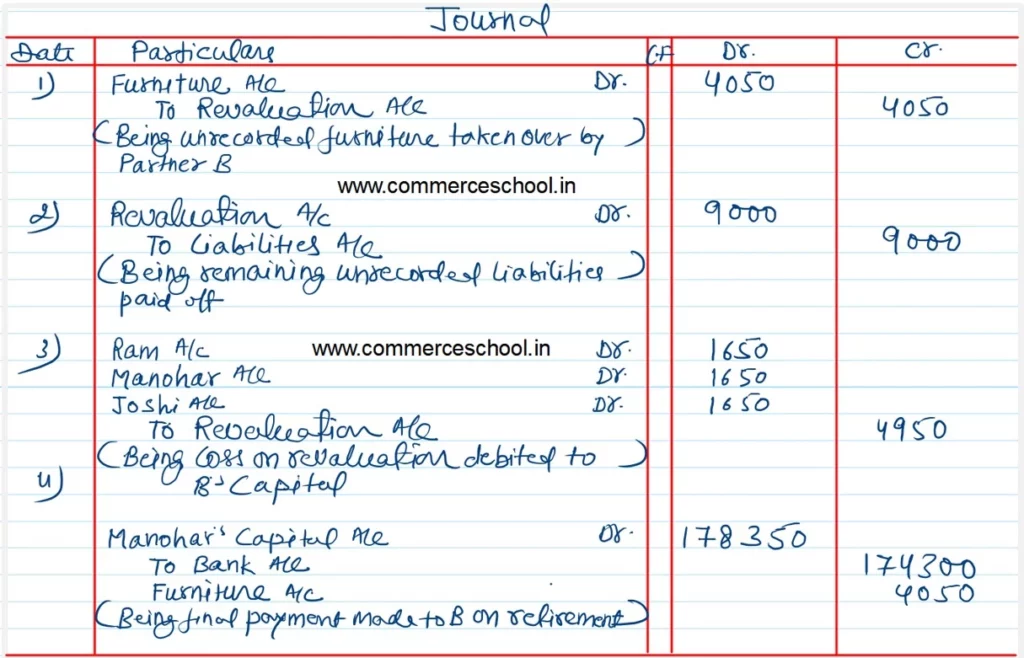 Journal
Date Particulars C.F Dr. Cr.
1) Furniture A/c Dr. 4050
To Revaluation A/c 4050
(Being unrecorded furniture taken over by)
Partner B
www.commerceschool.in
2) Revaluation A/c Dr. 9000
To Liabilities A/c 9000
(Being remaining unrecorded liabilities)
paid off
3) Ram A/c www.commerceschool.in Dr. 1650
Manohar A/c Dr. 1650
Joshi A/c Dr. 1650
To Revaluation A/c 4950
(Being loss on revaluation debited to)
4) B's Capital
Manohar's Capital A/c Dr. 178350
To Bank A/c 174300
Furniture A/c 4050
(Being final payment made to B on retirement)